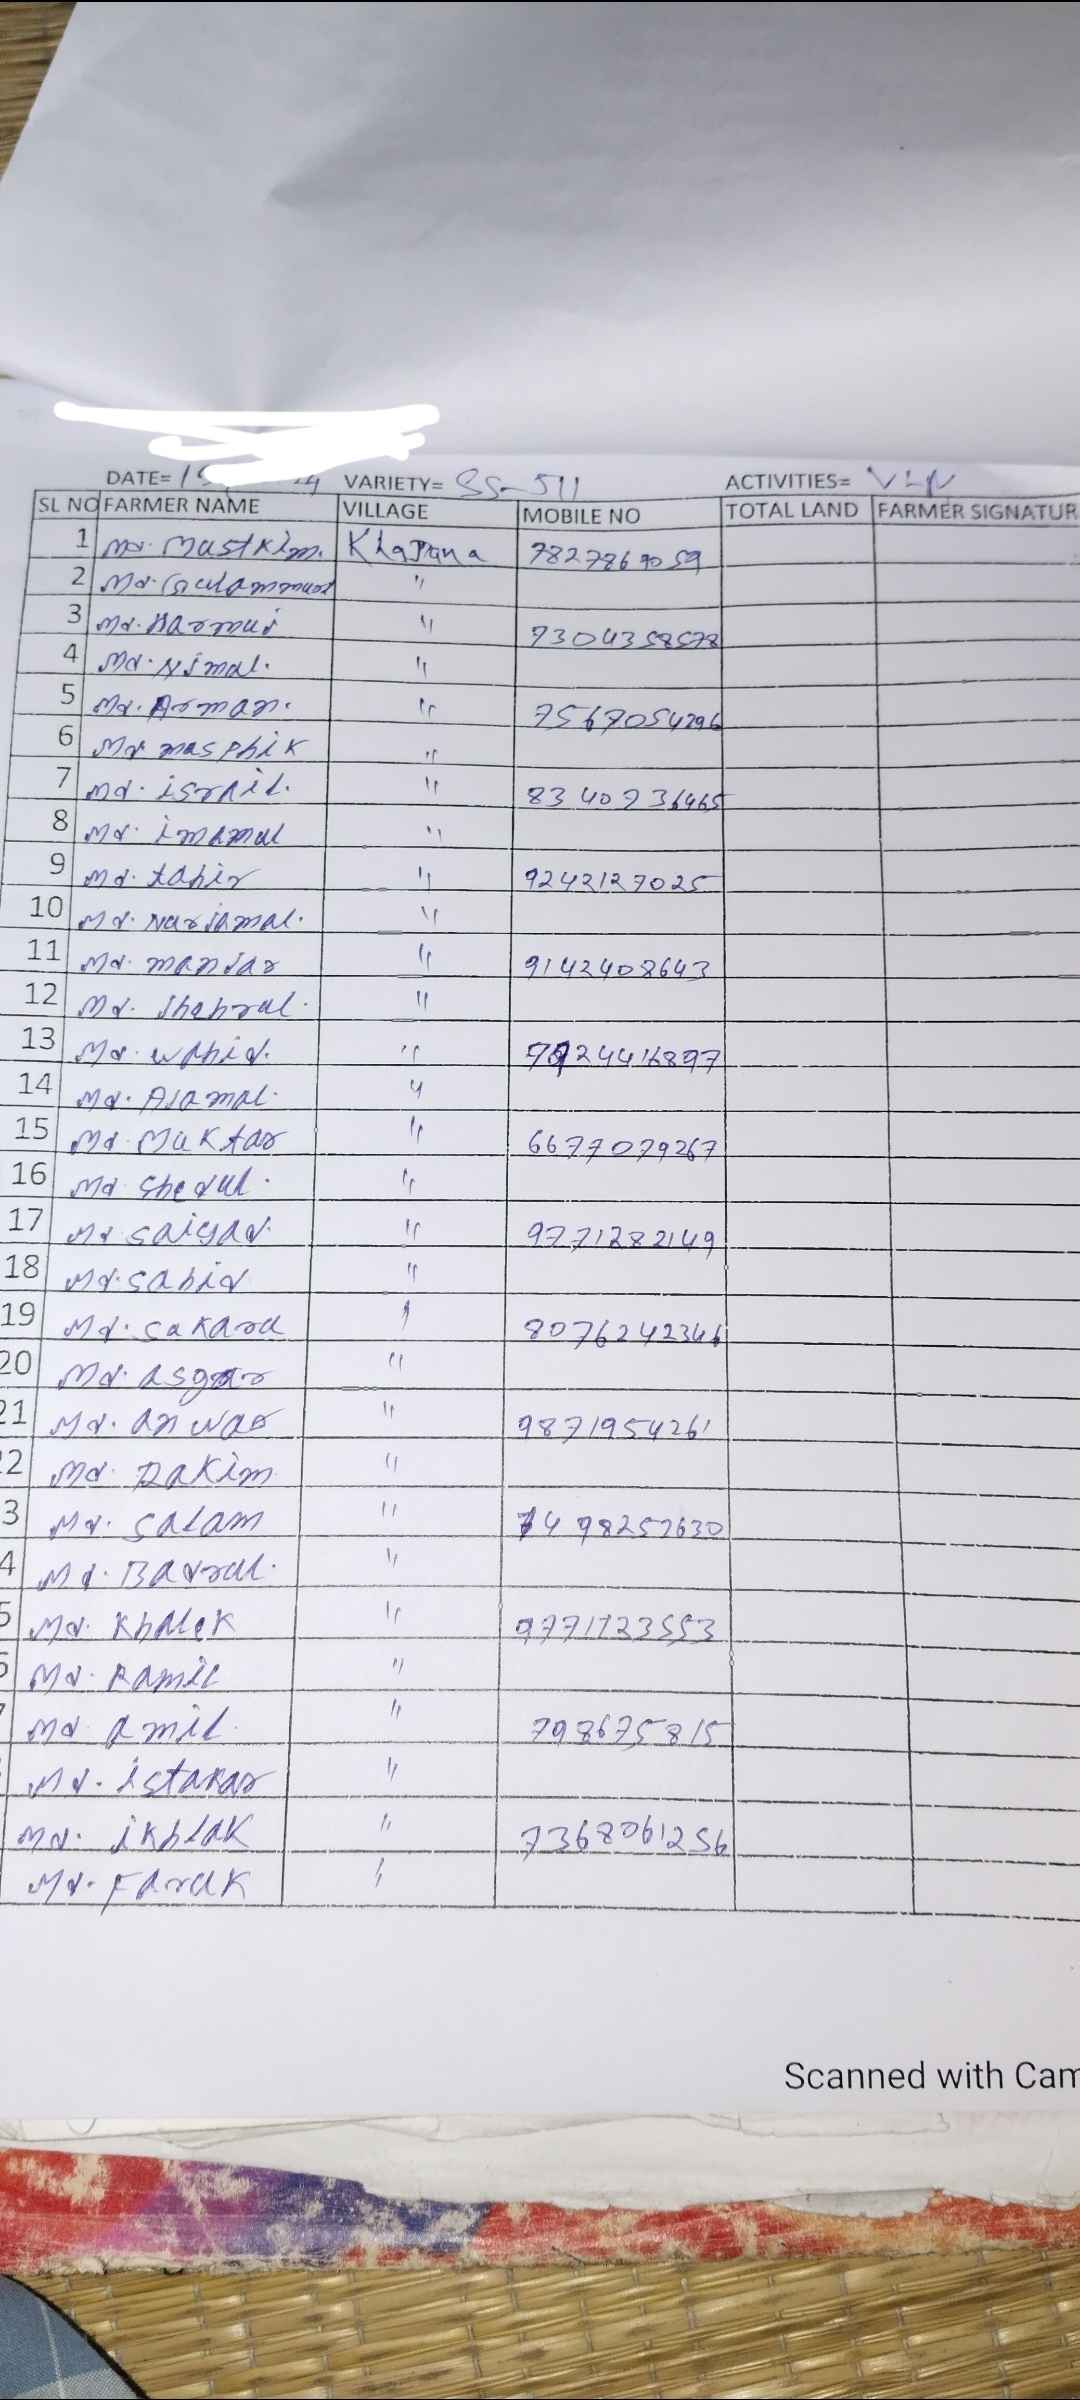 DATE= VARIETY= SS-511 ACTIVITIES=
SL NO FARMER NAME VILLAGE MOBILE NO TOTAL LAND FARMER SIGNATUR
1 Md. Mustkim. Khajana 7827869059
2 Md. "
3 Md. Harmuj " 7304358578
4 Md. Nimal. "
5 Md. Arman. " 7567054296
6 Md masphik "
7 md. israil. " 8340736465
8 Md. imamul "
9 Md. tahir " 9242127025
10 Md. Narjamal. "
11 Md. manjar " 9142408643
12 Md. Shahrul. "
13 Md. Wahid. " 24416897
14 Md. Ajamal. "
15 Md. Muktar " 6677079267
16 Md Shedul. "
17 Md saiyad. " 9771282149
18 Md. sabid "
19 Md. sakara " 8076242346
20 Md. asgar "
21 Md. anwar " 9871954261
2 Md. Rakim "
3 Md. Salam " 98257630
4 Md. Badrul. "
5 Md. Khalek " 9771723553
Md. Ramil "
Md. amil. " 798675815
Md. istakar "
Md. ikhlak " 7368061256
Md. Faruk "
Scanned with Cam